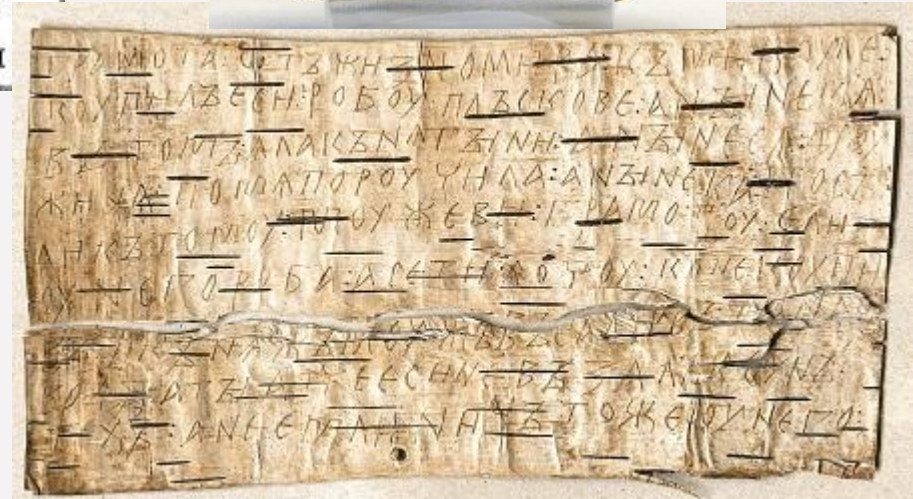 грамота : ѡтъ жизномира : къ микоуле :
коупилъ еси : робоу : плъскове : а ныне мѧ :
въ томъ : ѧла кънѧгыни : а ныне сѧ дроу
жина : по мѧ пороучила : а ныне ка : посъ
ли къ томоу : моужеви : грамотоу : е ли
оу него роба : а се ти : хочоу : коне коупи
кънѧжъ моужъ въсадивъ
а ты атче еси не възалъ коунъ :
техъ : а не емли : ничъто же оу него :